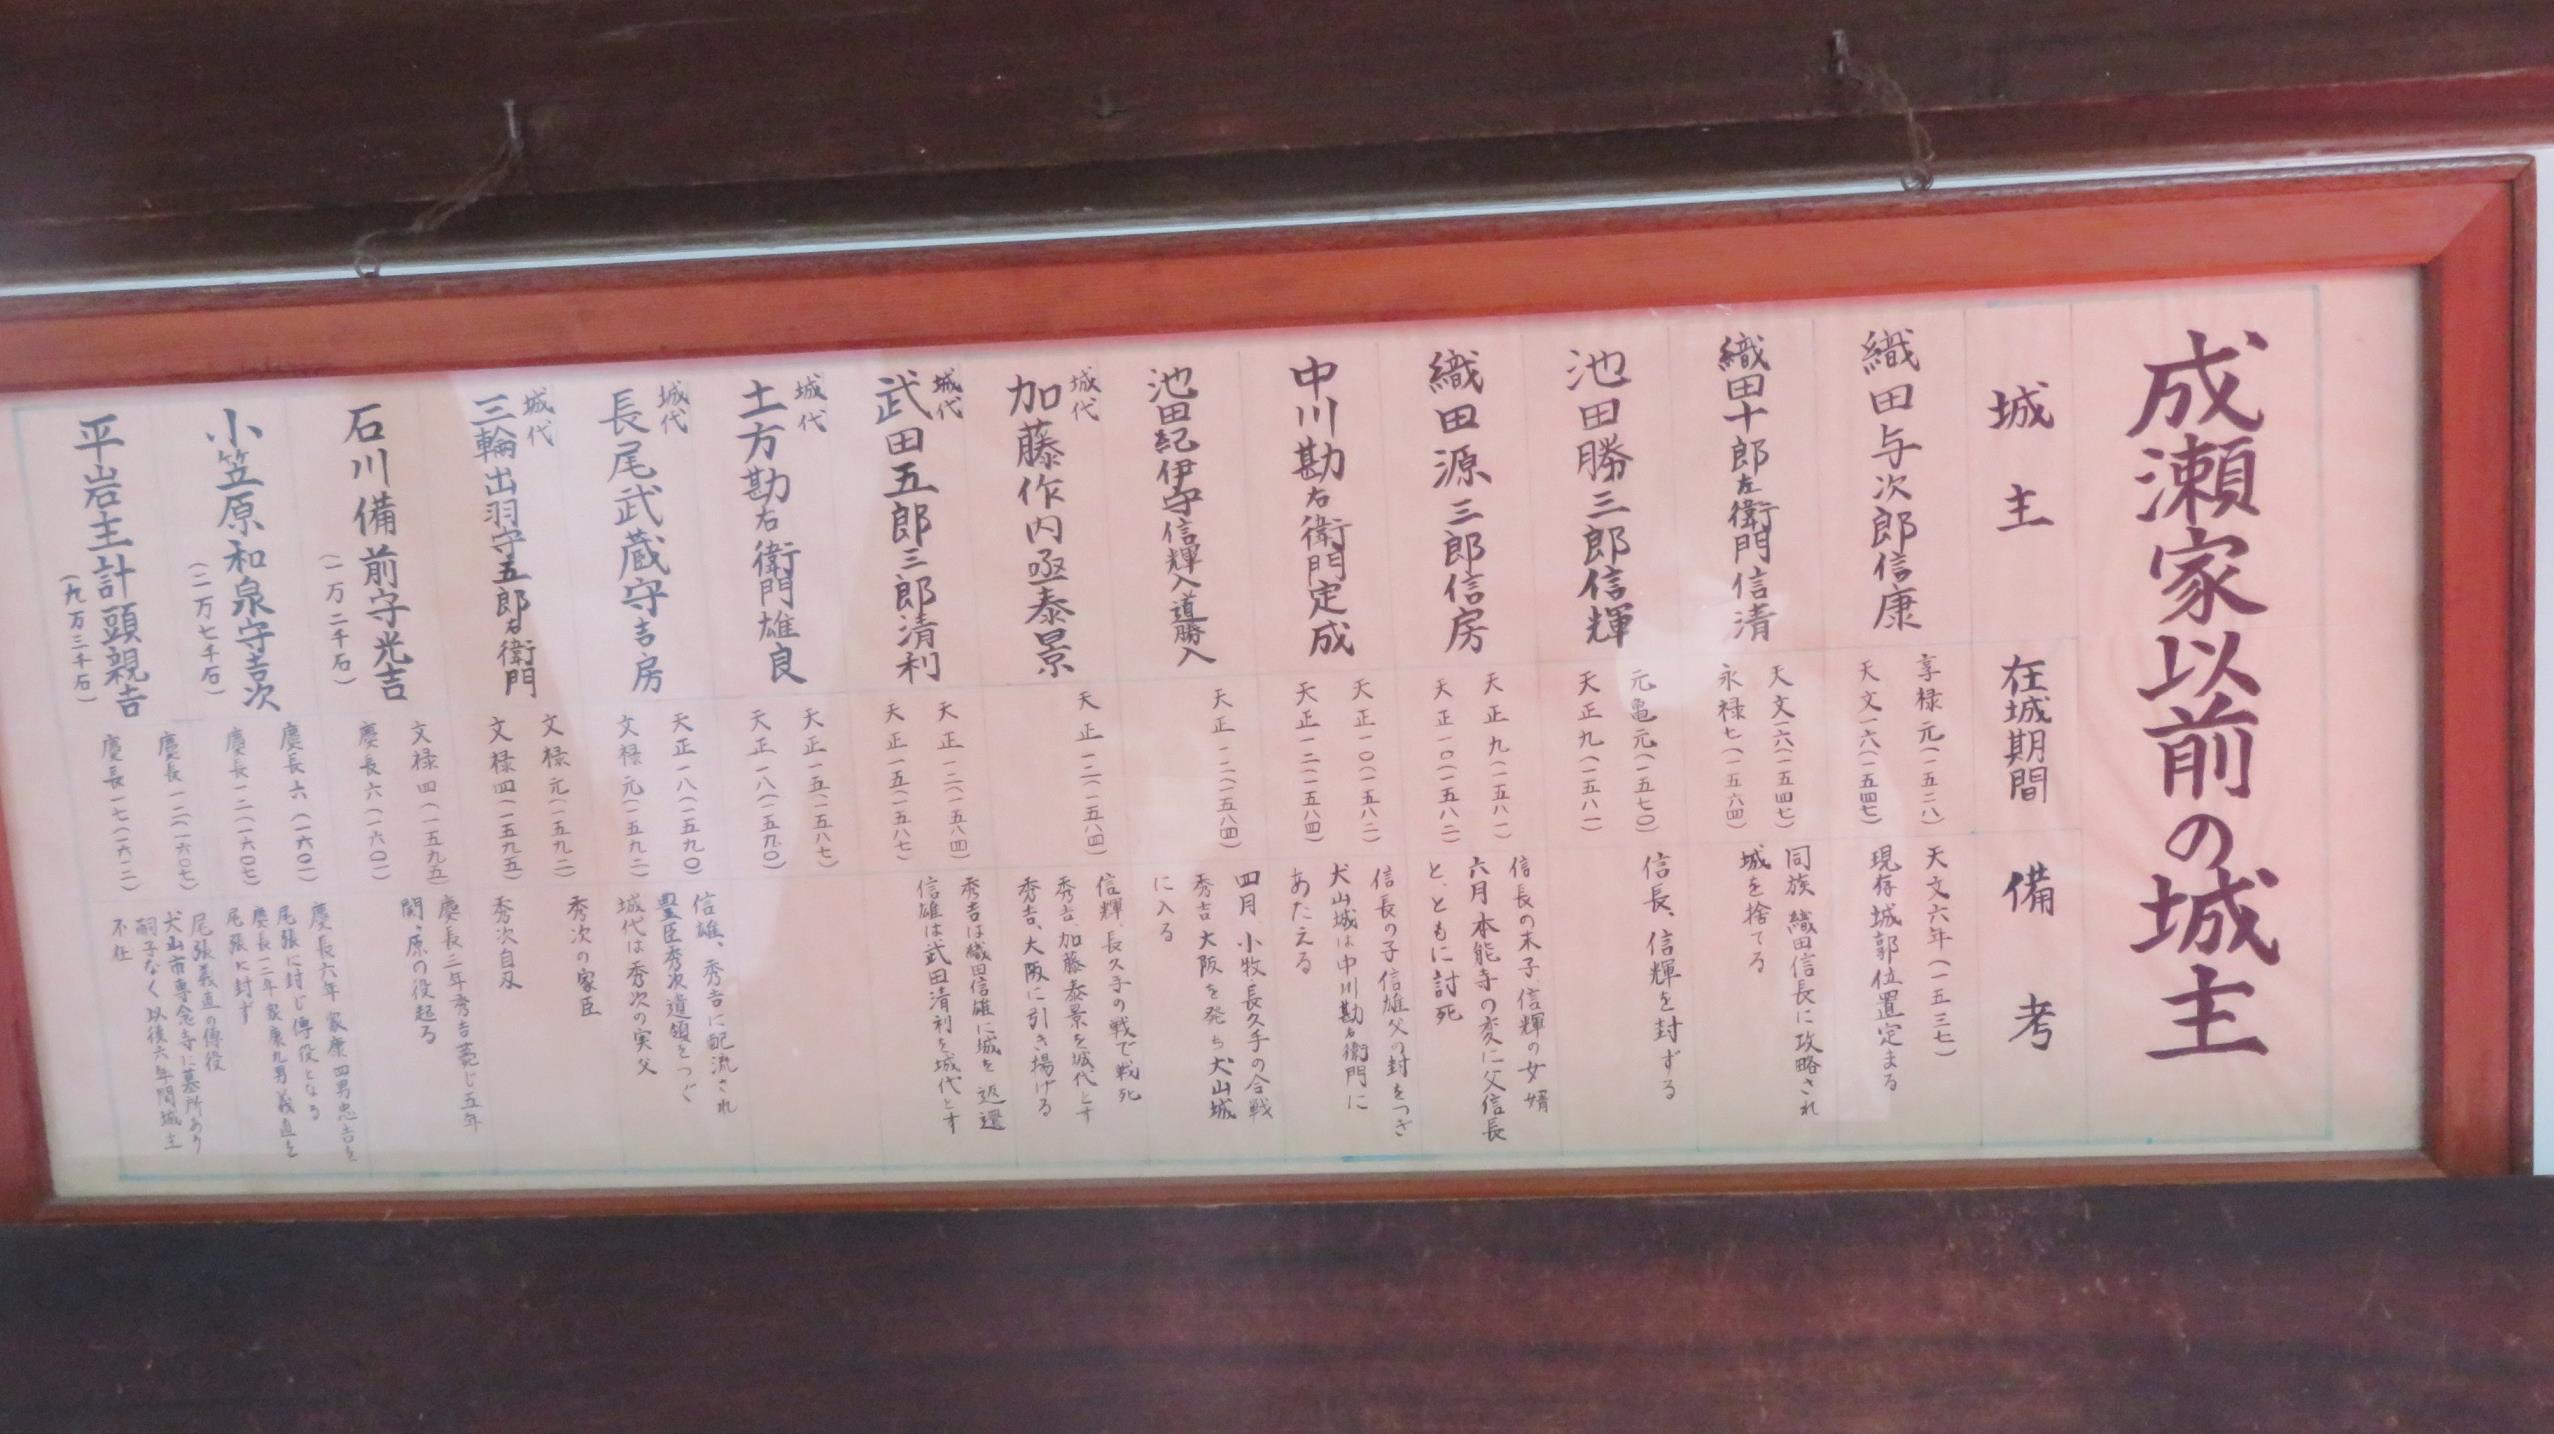 成瀬家以前の城主
城主
在城期間
備考
織田与次郎信康
享禄元(一五二八)
天文一六(一五四七)
天文六年(一五三七)
現存城郭位置定まる
織田十郎左衛門信清
天文一六(一五四七)
永禄七(一五六四)
同族織田信長に攻略され
城を捨てる
池田勝三郎信輝
元亀元(一五七〇)
天正九(一五八一)
信長、信輝を封ずる
織田源三郎信房
天正九(一五八一)
天正一〇(一五八二)
信長の末子信輝の女婿
六月本能寺の変に父信長
と、ともに討死
中川勘右衛門定成
天正一〇(一五八二)
天正一二(一五八四)
信長の子信雄父の封をつぎ
犬山城は中川勘右衛門に
あたえる
池田紀伊守信輝入道勝入
天正一二(一五八四)
四月、小牧長久手の合戦
秀吉大阪を発ち犬山城
に入る
城代
加藤作内亟泰景
天正一二(一五八四)
信輝、長久手の戦で戦死
秀吉、加藤泰景を城代とす
秀吉、大阪に引き揚げる
城代
武田五郎三郎清利
天正一二(一五八四)
天正一五(一五八七)
秀吉は織田信雄に城を返還
信雄は武田清利を城代とす
城代
土方勘右衛門雄良
天正一五(一五八七)
天正一八(一五九〇)
城代
長尾武蔵守吉房
天正一八(一五九〇)
文禄元(一五九二)
信雄、秀吉に配流され
豊臣秀次遺領をつぐ
城代は秀次の実父
城代
三輪出羽守五郎右衛門
文禄元(一五九二)
文禄四(一五九五)
秀次の家臣
秀次自刃
石川備前守光吉
(一万二千石)
文禄四(一五九五)
慶長六(一六〇一)
慶長三年秀吉薨じ五年
関、原の役起る
小笠原和泉守吉次
(二万七千石)
慶長六(一六〇一)
慶長一二(一六〇七)
慶長六年家康四男忠吉を
尾張に封じ傅役となる
慶長一二年家康九男義直を
尾張に封ず
平岩主計頭親吉
(九万三千石)
慶長一二(一六〇七)
慶長一七(一六一二)
尾張義直の傅役
犬山市専念寺に墓所あり
嗣子なく以後六年間城主
不在